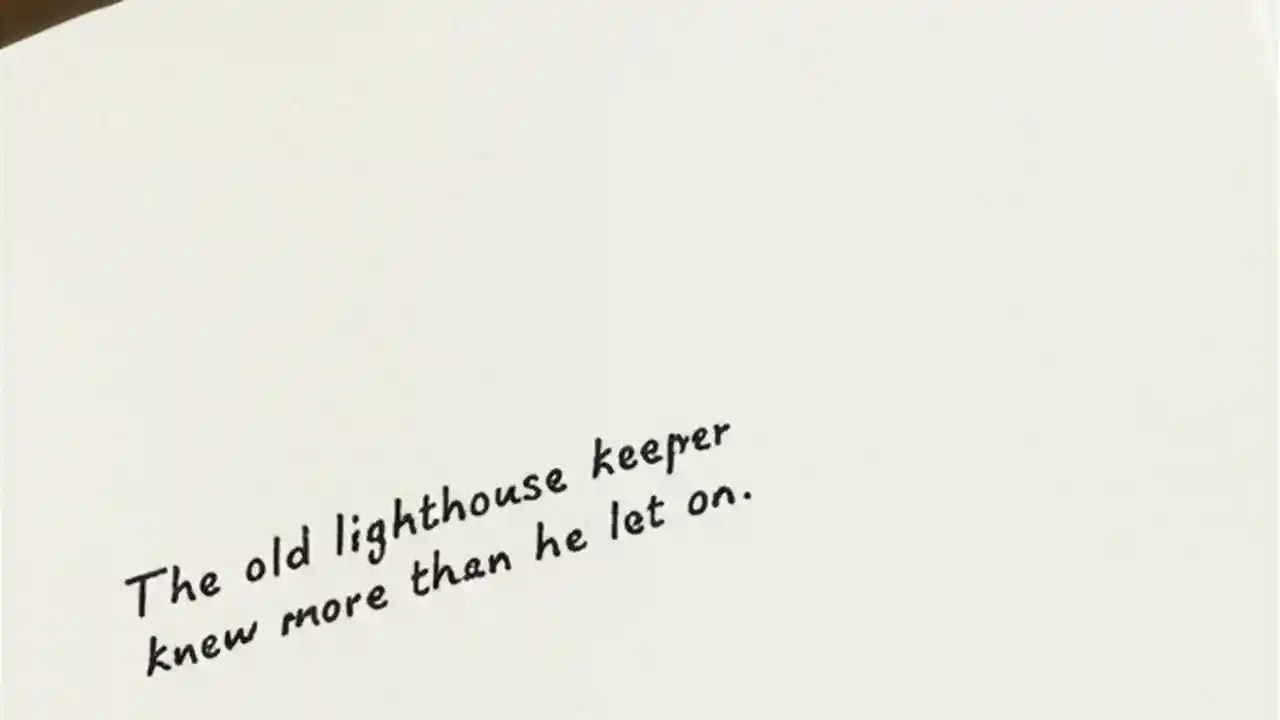 The old lighthouse keeper
knew more than he let on.